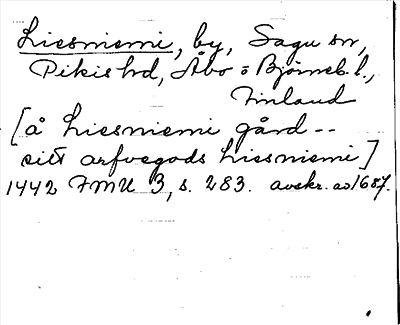 Liesniemi, by, Sagu sn,
Pikis hd, Åbo o Bjömeb. l.,
Finland
[å Liesniemi gård --
sitt arfvegods Liesniemi]
1442 FMU 3, s. 283. avskr. av 1687.